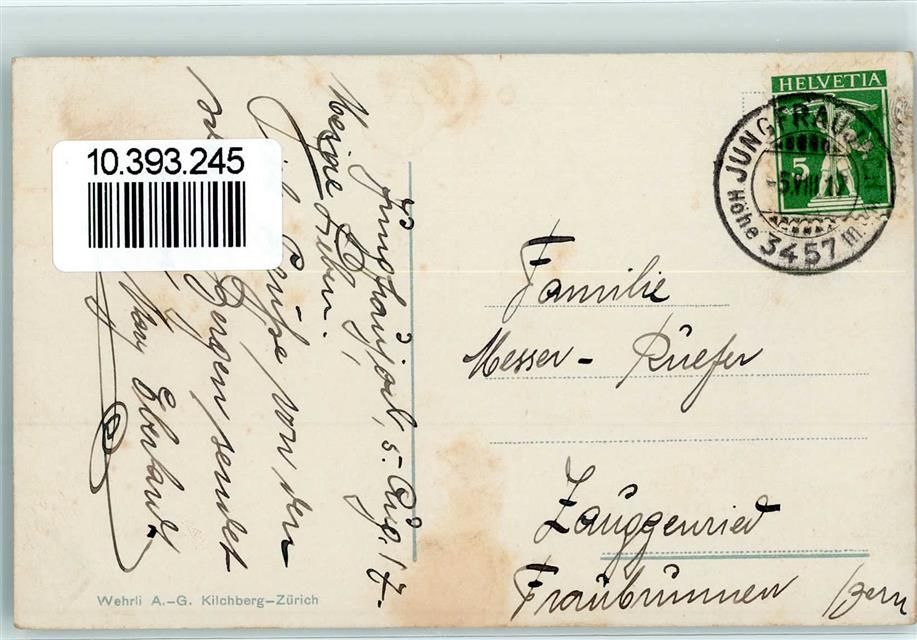 HELVETIA
5
JUNGFRAUJOCH
5.VIII.17
Höhe 3457 m
10.393.245
Jungfraujoch, 5. Aug. 17.
Meine Lieben!
Grüße von den
Bergen sendet
Familie
Messer- Rüefer
Zauggenried
Fraubrunnen /Bern
Wehrli A.-G. Kilchberg-Zürich